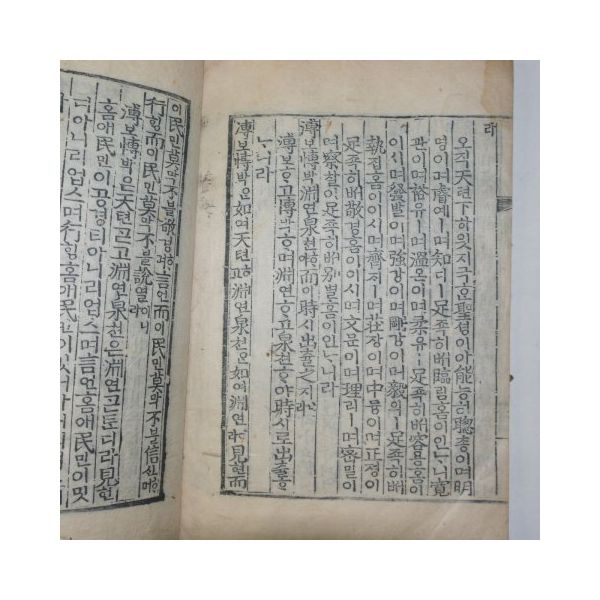 라
오직天텬下하의지극ᄒᆞᆫ聖셩이아能능히聰총이며明
명이며睿예ㅣ며知디ㅣ足죡히ᄡᅥ臨림홈이인ᄂᆞ니寬
관이며裕유ㅣ며溫온이며柔유ㅣ足죡히ᄡᅥ容용홈이
이시며發발이며强강이며剛강이며毅의ㅣ足죡히ᄡᅥ
執집홈이이시며齊ᄌᆡㅣ며莊장이며中듕이며正졍이
足죡히ᄡᅥ敬경홈이이시며文문이며理리ㅣ며密밀이
며察찰이足죡히ᄡᅥ別별홈이인ᄂᆞ니라
溥보博박淵연泉쳔ᄒᆞ야而이時시出츌之지라
溥보ᄒᆞ고博박ᄒᆞ며淵연ᄒᆞ고泉쳔ᄒᆞ야時시로出츌ᄒᆞ
ᄂᆞ니라
溥보博박은如여天텬ᄒᆞ고淵연泉쳔은如여淵연ᄒᆞ니라見현而
이民민莫막不블敬경ᄒᆞ며言언而이民민莫막不블信신ᄒᆞ며
行ᄒᆡᆼ而이民민莫막不블說열이니라
溥보博박은天텬ᄀᆞᆮ고淵연泉쳔은淵연ᄀᆞᆮ토디라見현
홈애民민이공경티아니리업스며言언홈애民민이밋
디아니리업스며行ᄒᆡᆼ홈애民민이깃거